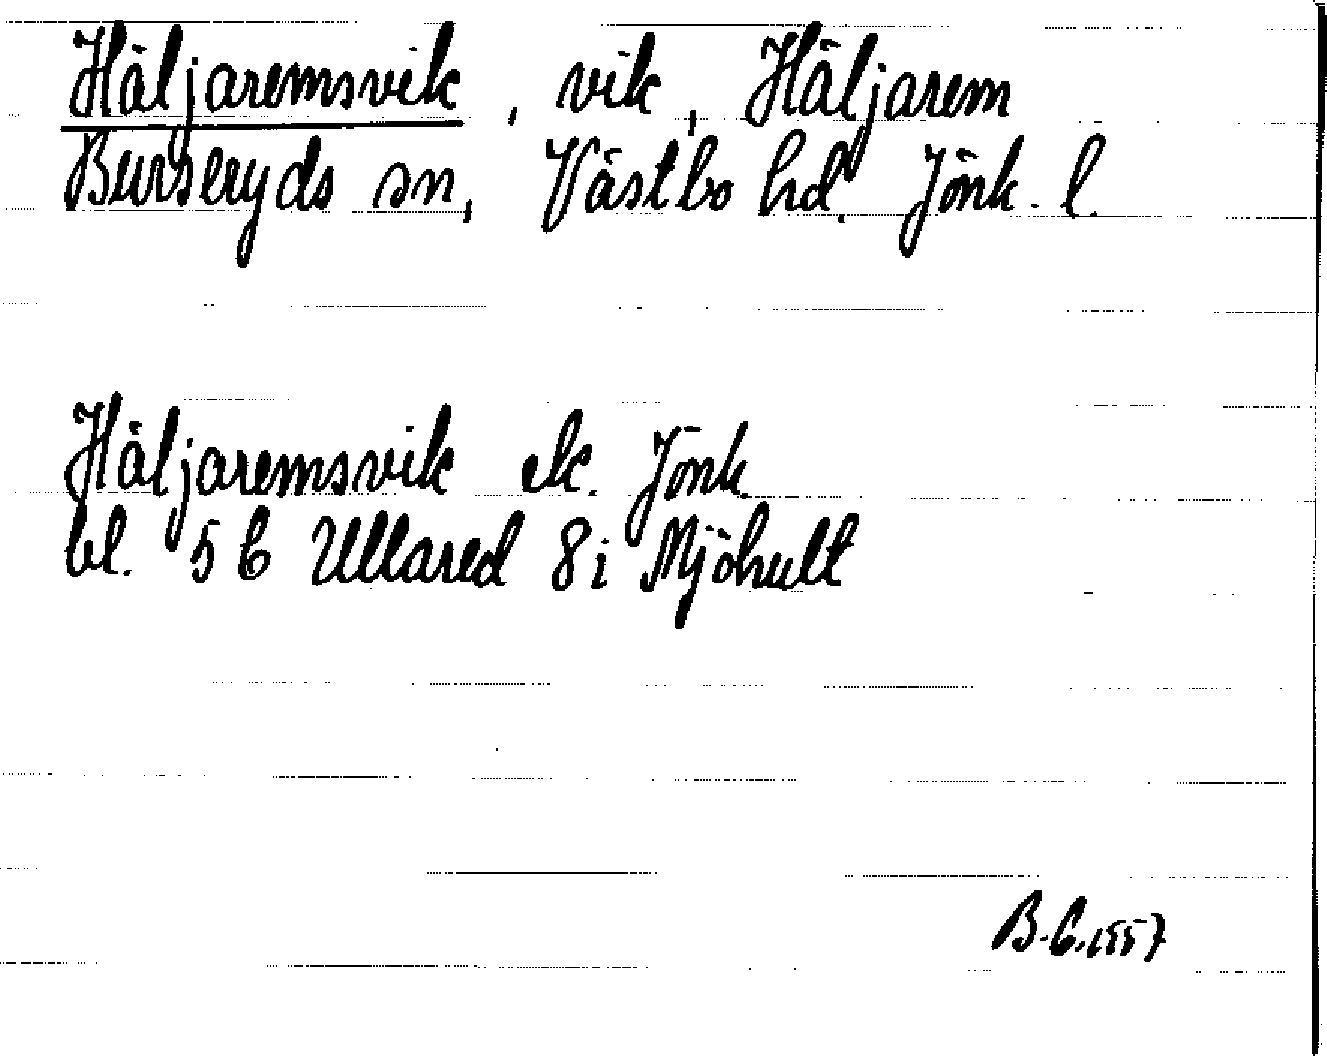 Häljaremsvik, vik, Häljarem
Burseryds sn, Västbo hd. Jönk. l.
Häljaremsvik ek. Jönk.
bl. 5C Ullared 8i Mjöhult